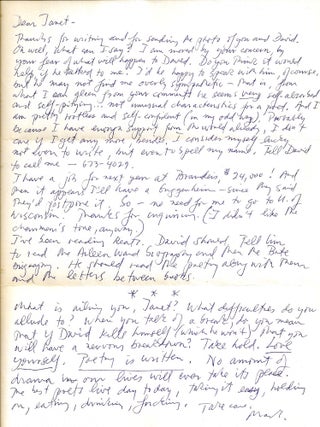 Dear Janet-
Thanks for writing and for sending the photo of you and David.
Oh well, what can I say? I am moved by your concern, by
your fear of what will happen to David. Do you think it would
help if he talked to me? I'd be happy to speak with him, of course,
but he may not find me overly sympathetic - that is, from
what I can glean from your comments he seems very self absorbed
and self-pitying... not unusual characteristics for a poet. And I
am pretty ruthless and self-confident (in my odd way). Partially
because I have enough support from the world already, I don't
care if I get any more. Kinder, I consider myself lucky
not even to write, but even to spell my name. Tell David
to call me - 673-4029.
I have a job for next year at Brandeis, $24,000! And
then it appears I'll have a Guggenheim - since they said
they'd postpone it. So - no need for me to go to U. of
Wisconsin. Thanks for inquiring. (I didn't like the
chairman's tone, anyway.)
I've been reading Keats. David should. Tell him
to read the Aileen Ward biography and then the Bate
biography. He should read the poetry along with them
and the letters between books.
* * *
What is ailing you, Janet? What difficulties do you
allude to? When you talk of a break, do you mean
that if David kills himself (which he won't) that you
will have a nervous breakdown? Take hold. Love
yourself. Poetry is written. No amount of
drama in our lives will ever take its place.
The best poets live day to day, taking it easy, holding
on, eating, drinking, fucking. Take care.
Mark.